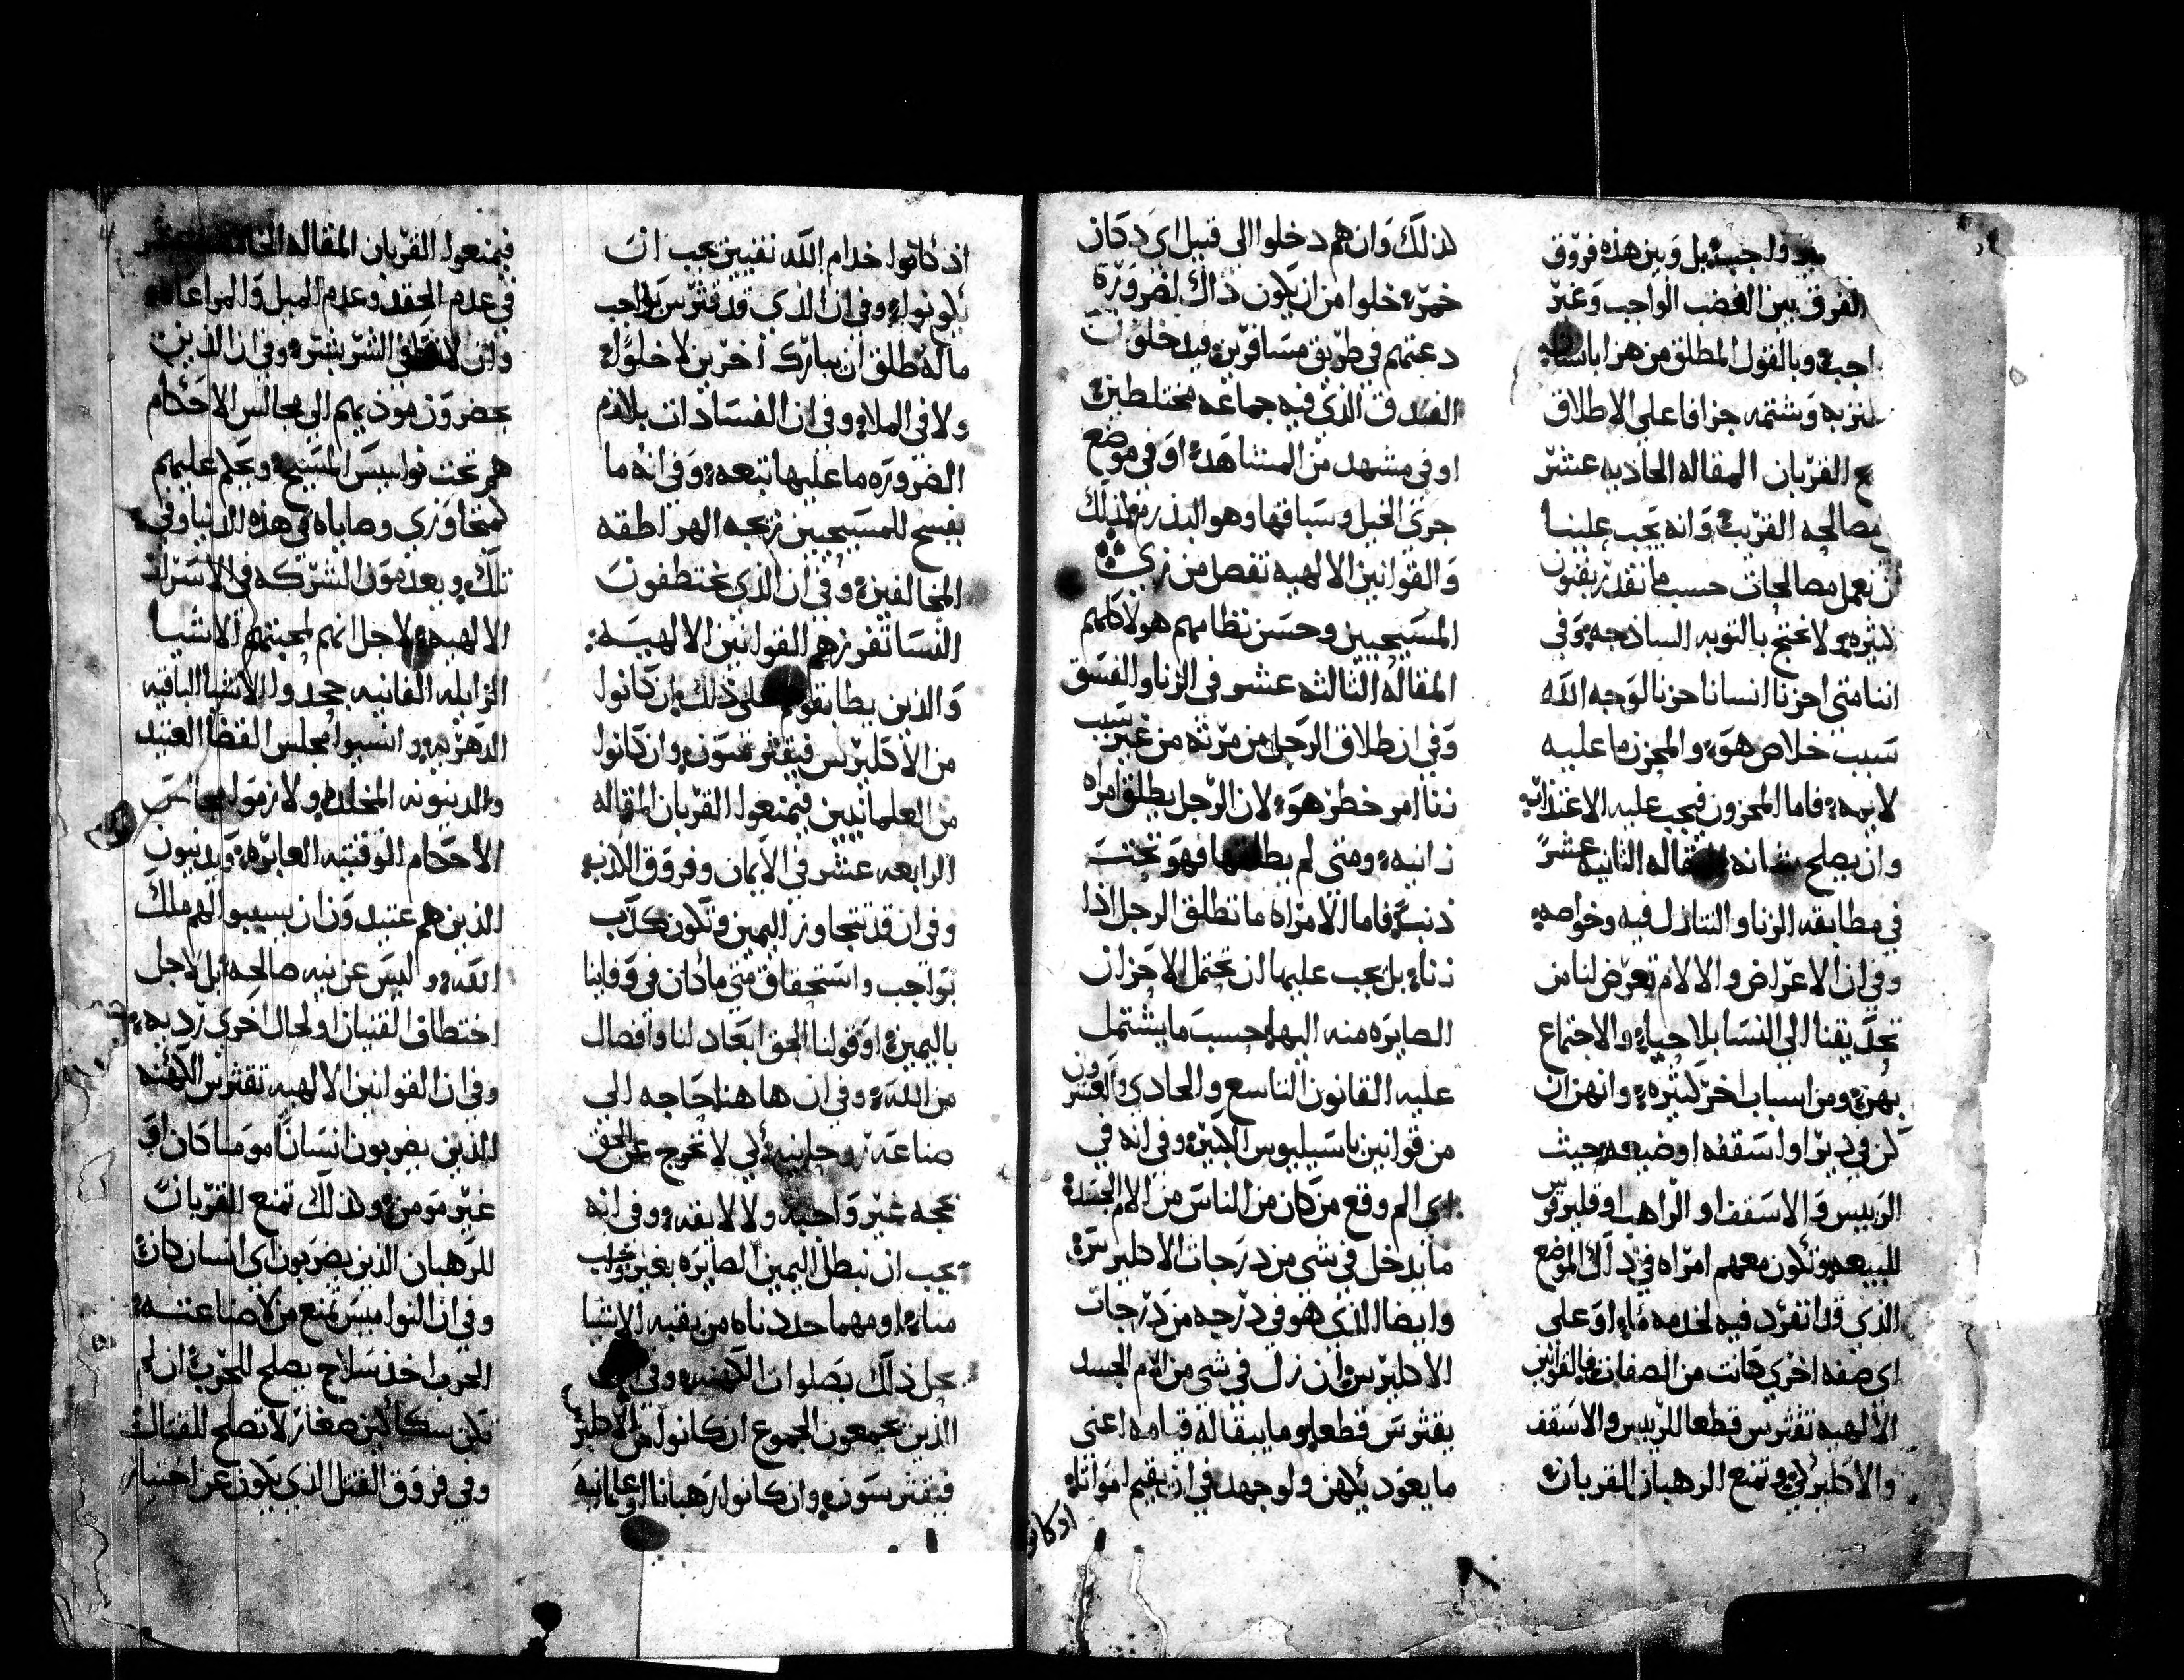 واجب بل وبين هذه فروق
الفرق بين الغضب الواجب وغير
وبالقول المطلق من هزا بانسان
وشتمه جزافا على الاطلاق
القربان المقاله الحاديه عشر
مصالحه القريب وانه يجب علينا
ان نعمل مصالحات حسب ما نقدر بفنون
كثيره ولا نحتج بالتوبه الساذجه وفى
اننا متى احزنا انسانا حزنا لوجه الله
سبب خلاص هو والمحزن ما عليه
لايمه فاما المحزون فيجب عليه الاعتذاب
وان يصلح شانه المقاله الثانيه عشر
في مطابقه الزنا والتنازل فيه وخواصه
وفي ان الاعراض والالام تعرض لنا من
تحديقنا الى النسا بلا حيا والاجتماع
بهن ومن اسباب اخر كثيره وانهن ان
كن في دير او اسقفه او ضيعه حيث
الرييس والاسقف او الراهب او قليرقس
للبيعه وتكون معهم امراه في ذاك الموضع
الذي قد انفرد فيه لخدمه ما او على
اي صفه اخري كانت من الصفات فالقوانين
الالهيه تقثرس قطعا للرييس والاسقف
والاكليركي وتمنع الرهبان القربان
لذلك وان هم دخلوا الى قبيل اي دكان
خمر خلوا من ان يكون ذاك لضروره
دعتهم في طريق مسافرين فيدخلون
الفندق الذي فيه جماعه مختلطين
او في مشهد من المشاهد او في موضع
جرى الخيل وسباقها وهو البذرمو لذلك
والقوانين الالهيه تفصل من زي
المسيحيين وحسن نظامهم هولا كلهم
المقاله الثالثه عشر في الزنا والفسق
وفي ان طلاق الرجل من مرته من غير سبب
زنا امر خطر هو لان الرجل يطلق امراه
زانيه ومتى لم يطلقها فهو تحت
ذنب فاما الامراه ما تطلق الرجل اذا
زنا بل يجب عليها ان تحتمل الاحزان
الصايره منه اليها حسب ما يشتمل
عليه القانون التاسع والحادي والعشرون
من قوانين باسيليوس الكبير وفي انه في
اي الم وقع من كان من الناس من الام الجسد
ما يدخل في شي من درجات الاكليرس
وايضا الذي هو في درجه من درجات
الاكليرس وان زل في شي من الام الجسد
يقثرس قطعا وما يبقا له قيامه اعني
ما يعود يكهن ولو جهد في ان يقيم امواتا
اذ كانوا خدام الله نقيين يجب ان
يكونوا وفي ان الذي قد قثرس بواجب
ما له طلق ان يبارك اخرين لا خلوا
ولا في الملا وفي ان الفسادات بلازم
الضروره ما عليها تبعه وفي انه ما
يفسح للمسيحيين زيجه الهراطقه
المخالفين وفي ان الذي يختطفون
النسا تفرزهم القوانين الالهيه
والذين يطابقونهم على ذلك ان كانوا
من الاكليرس فيقثرسون وان كانوا
من العلمانيين فيمنعوا القربان المقاله
الرابعه عشر في الايمان وفروق الكذب
وفي ان قد نتجاوز اليمين وتكون كذب
بواجب واستحقاق متى ما كان في وفاينا
باليمين او قولنا الحق ابعاد لنا وافصال
من الله وفي ان ها هنا حاجه الى
صناعه روحانيه لكي لا نخرج عن الحق
بحجه غير واجبه ولا لايقه وفى انه
يجب ان نبطل اليمين الصايره بغير صواب
منا ومهما حددناه من بقيه الاشيا
يحل ذلك بصلوات الكهنه وفي
الذين يجمعون الجموع ان كانوا من الاكليرس
فيقثرسون وان كانوا رهبانا او علمانيه
فيمنعوا القربان المقاله
في عدم الحقد وعدم الميل والمراعاه
وان لا نكافي الشر بشر وفي ان الذين
يحضرون موذييهم الى مجالس الاحكام
هم تحت نواميس المسيح ويحكم عليهم
كمتجاوزي وصاياه في هذه الدنيا وفي
تلك ويعدمون الشركه في الاسرار
الالهيه لاجل انهم لمحبتهم الاشيا
الزايله الفانيه جحدوا الاشيا الباقيه
الدهريه وانسيوا مجلس القضا العتيد
والدينونه المخلده ولازموا مجالس
الاحكام الوقتيه العابره ويدينون
الذين هم عتيدون ان يسببوا لهم ملك
الله وليس عن نيه صالحه بل لاجل
اختطاف القنيان او لحال اخرى رديه
وفي ان القوانين الالهيه تقثرس الكهنه
الذين يضربون انسانا مومنا كان او
غير مومن وكذلك تمنع القربان
للرهبان الذين يضربون اي انسان كان
وفي ان النواميس تمنع من لا صناعته
الحرب اخذ سلاح يصلح للحرب ان لم
تكن سكاكين صغار لا تصلح للقتال
وفي فروق القتل الذي يكون عن اختيار